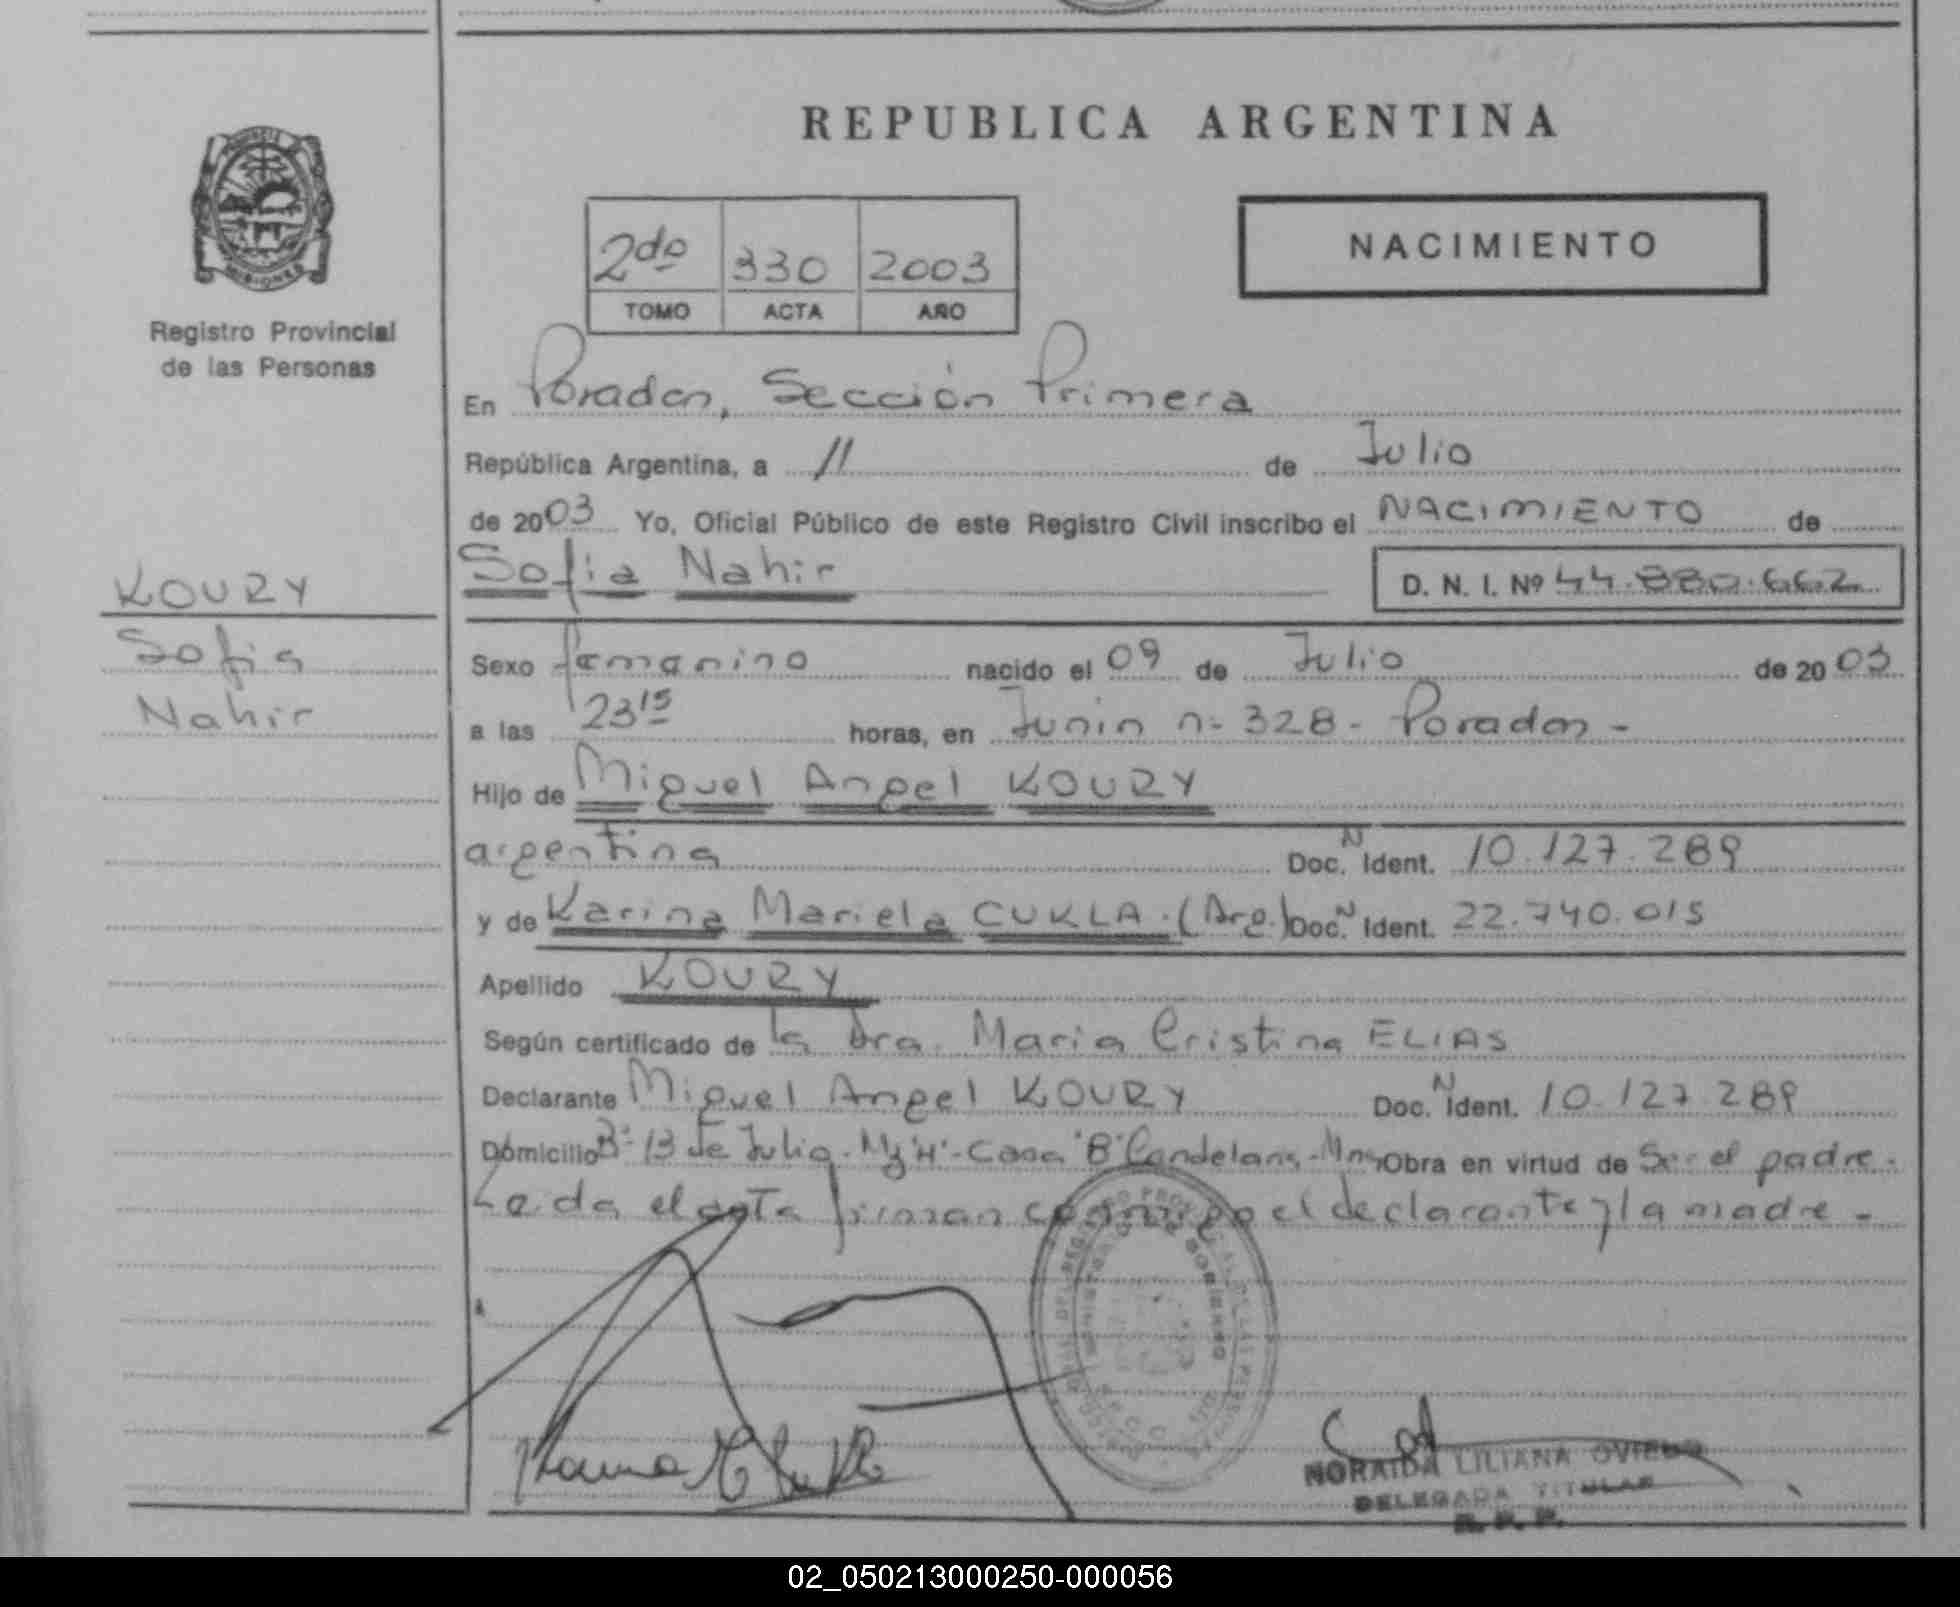 REPUBLICA ARGENTINA
NACIMIENTO
2do 330 2003
TOMO ACTA AÑO
Registro Provincial
de las Personas
En Posadas, Sección Primera
República Argentina, a 11 de Julio
de 2003 Yo, Oficial Público de este Registro Civil inscribo el NACIMIENTO de
Sofia Nahir D. N. I. Nº 44.880.662
KOURY
Sofia
Nahir
Sexo femenino nacido el 09 de Julio de 2003
a las 23 15 horas, en Junin n- 328 - Posadas -
Hijo de Miguel Angel KOURY
argentina Doc. N Ident. 10.127.289
y de Karina Mariela CUKLA. (Arg.) Doc. N Ident. 22.740.015
Apellido KOURY
Según certificado de la Dra. Maria Cristina ELIAS
Declarante Miguel Angel KOURY Doc. N Ident. 10.127.289
Domicilio Bº 13 de Julio - Mz "H" - Casa "8" Candelaria - Mnes Obra en virtud de Ser el padre.
Leida el acta firman conmigo el declarante y la madre -
NORAIDA LILIANA OVIEDO
DELEGADA TITULAR
R. P. P.
02_050213000250-000056